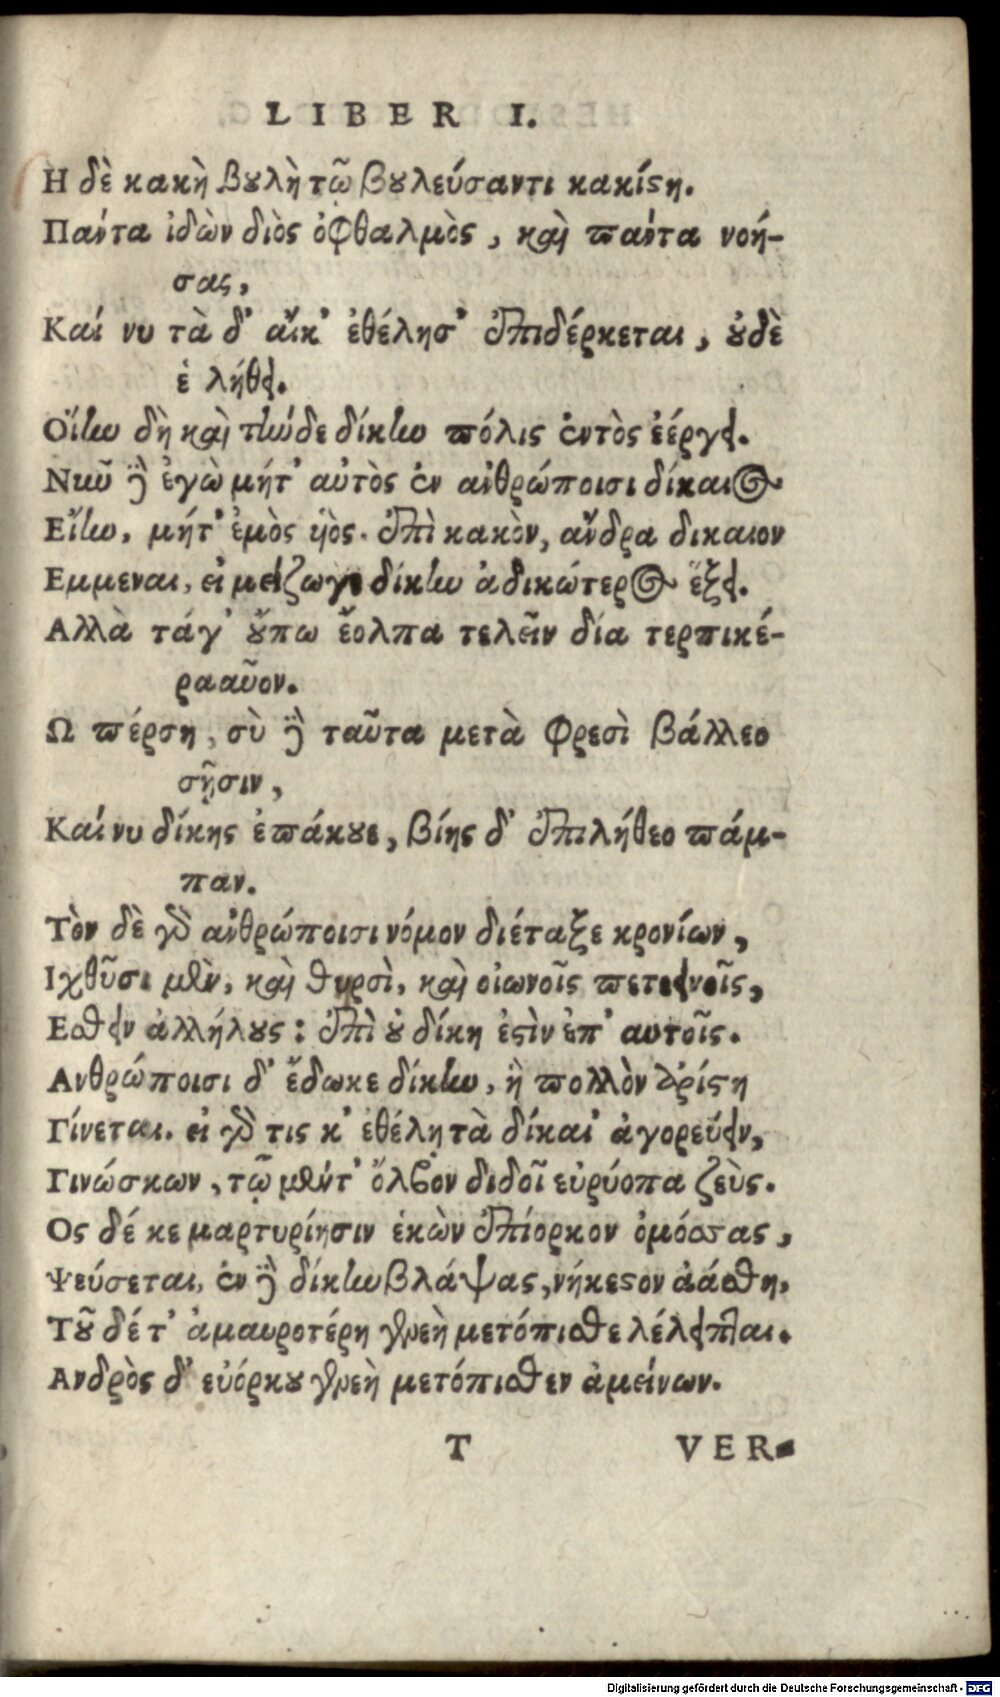 LIBER I.
Η δὲ κακὴ βȣλὴ τῷ βȣλεύσαντι κακίϛη.
Πάντα ἰδὼν διὸς ὀφθαλμὸς, καὶ πάντα νοή-
σας,
Καί νυ τὰ δ' αἴκ' ἐθέλησ' ἐπιδέρκεται, ȣδὲ
ἑ λήθει.
Οἵην δὴ καὶ τήνδε δίκην πόλις ἐντὸς ἐέργει.
Νῦν δὴ ἐγὼ μήτ' αὐτὸς ἐν ἀνθρώποισι δίκαιος
Εἴην, μήτ' ἐμὸς ὑός. ἐπὶ κακὸν, ἄνδρα δικαιον
Εμμεναι, εἰ μείζω γε δίκην ἀδικώτερος ἕξει.
Αλλὰ τάγ' ȣ̓́πω ἔολπα τελεῖν δία τερπικέ-
ραυνον.
Ω πέρση, σὺ δὴ ταῦτα μετὰ φρεσὶ βάλλεο
σῇσιν,
Καί νυ δίκης ἐπάκȣε, βίης δ' ἐπιλήθεο πάμ-
παν.
Τὸν δὲ γὰρ ἀνθρώποισι νόμον διέταξε κρονίων,
Ιχθῦσι μὲν, καὶ θηρσὶ, καὶ οἰωνοῖς πετεινοῖς,
Εσθειν ἀλλήλȣς: ἐπὶ ȣ̓ δίκη ἐϛὶν ἐπ' αυτοῖς.
Ανθρώποισι δ' ἔδωκε δίκην, ἣ πολλὸν ἀρίϛη
Γίνεται. εἰ γάρ τις κ' ἐθέλῃ τὰ δίκαι' ἀγορεύειν,
Γινώσκων, τῷ μέντ' ὄλβον διδοῖ εὐρύοπα ζεὺς.
Ος δέ κε μαρτυρίῃσιν ἑκὼν ἐπίορκον ὀμόσσας,
Ψεύσεται, ἐν δὴ δίκην βλάψας, νήκεϛον ἀάσθη,
Τȣ͂ δέ τ' ἀμαυροτέρη γενεὴ μετόπισθε λέλειπται.
Ανδρὸς δ' εὐόρκȣ γενεὴ μετόπισθεν ἀμείνων.
T VER-
Digitalisierung gefördert durch die Deutsche Forschungsgemeinschaft - DFG